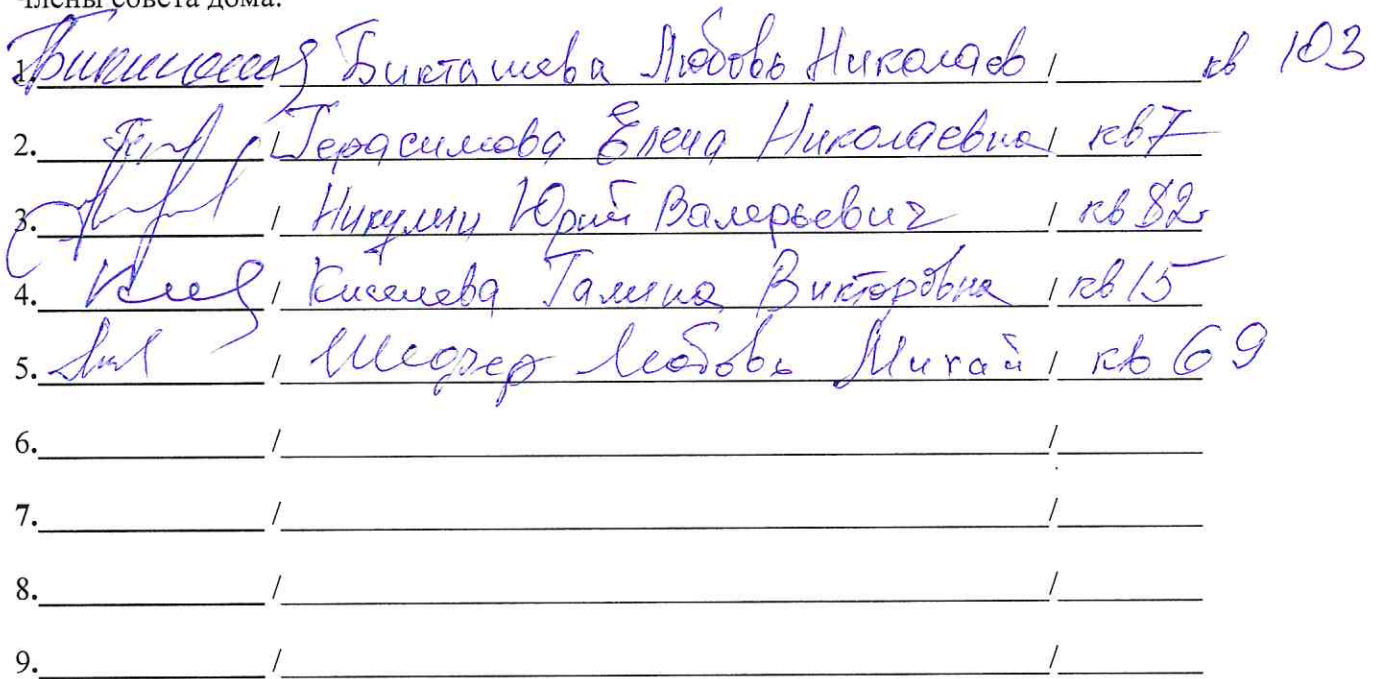 Члены совета дома:
1. / Бикташева Любовь Николаев / кв 103
2. / Герасимова Елена Николаевна / кв 7
3. / Никулин Юрий Валерьевич / кв 82
4. / Киселева Галина Викторовна / кв 15
5. / Любовь Михай / кв 69
6. / /
7. / /
8. / /
9. / /